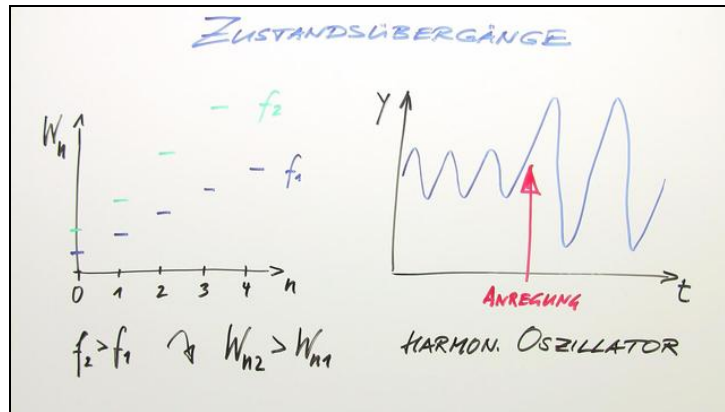 ZUSTANDSÜBERGÄNGE
Wn
f2
f1
0 1 2 3 4 n
f2>f1 ↷ Wn2>Wn1
Y
ANREGUNG
t
HARMON. OSZILLATOR